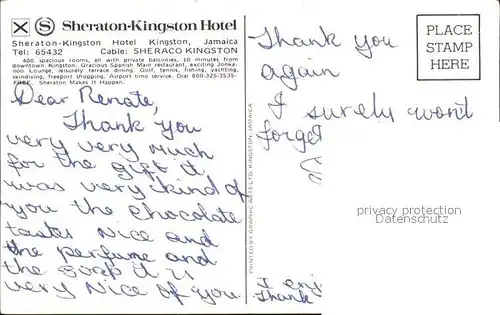 Sheraton-Kingston Hotel
Sheraton-Kingston Hotel Kingston, Jamaica
Tel: 65432 Cable: SHERACO KINGSTON
400 spacious rooms, all with private balconies, 10 minutes from
downtown Kingston. Gracious Spanish Main restaurant, exciting Jonka-
noo Lounge, leisurely terrace dining. Golf, tennis, fishing, yachting,
skindiving, freeport shopping. Airport limo service. Dial 800-325-3535-
FREE. Sheraton Makes It Happen.
Dear Renate,
Thank you
very very much
for the gift it
was very kind of
you the chocolate
tastes Nice and
the perfume and
the soap it is
very Nice of you
PRINTED BY GRAPHIC ARTS LTD. KINGSTON, JAMAICA
Thank you
again
I surely wont
forget
I enj
Thank
PLACE
STAMP
HERE
privacy protection
DSGVO